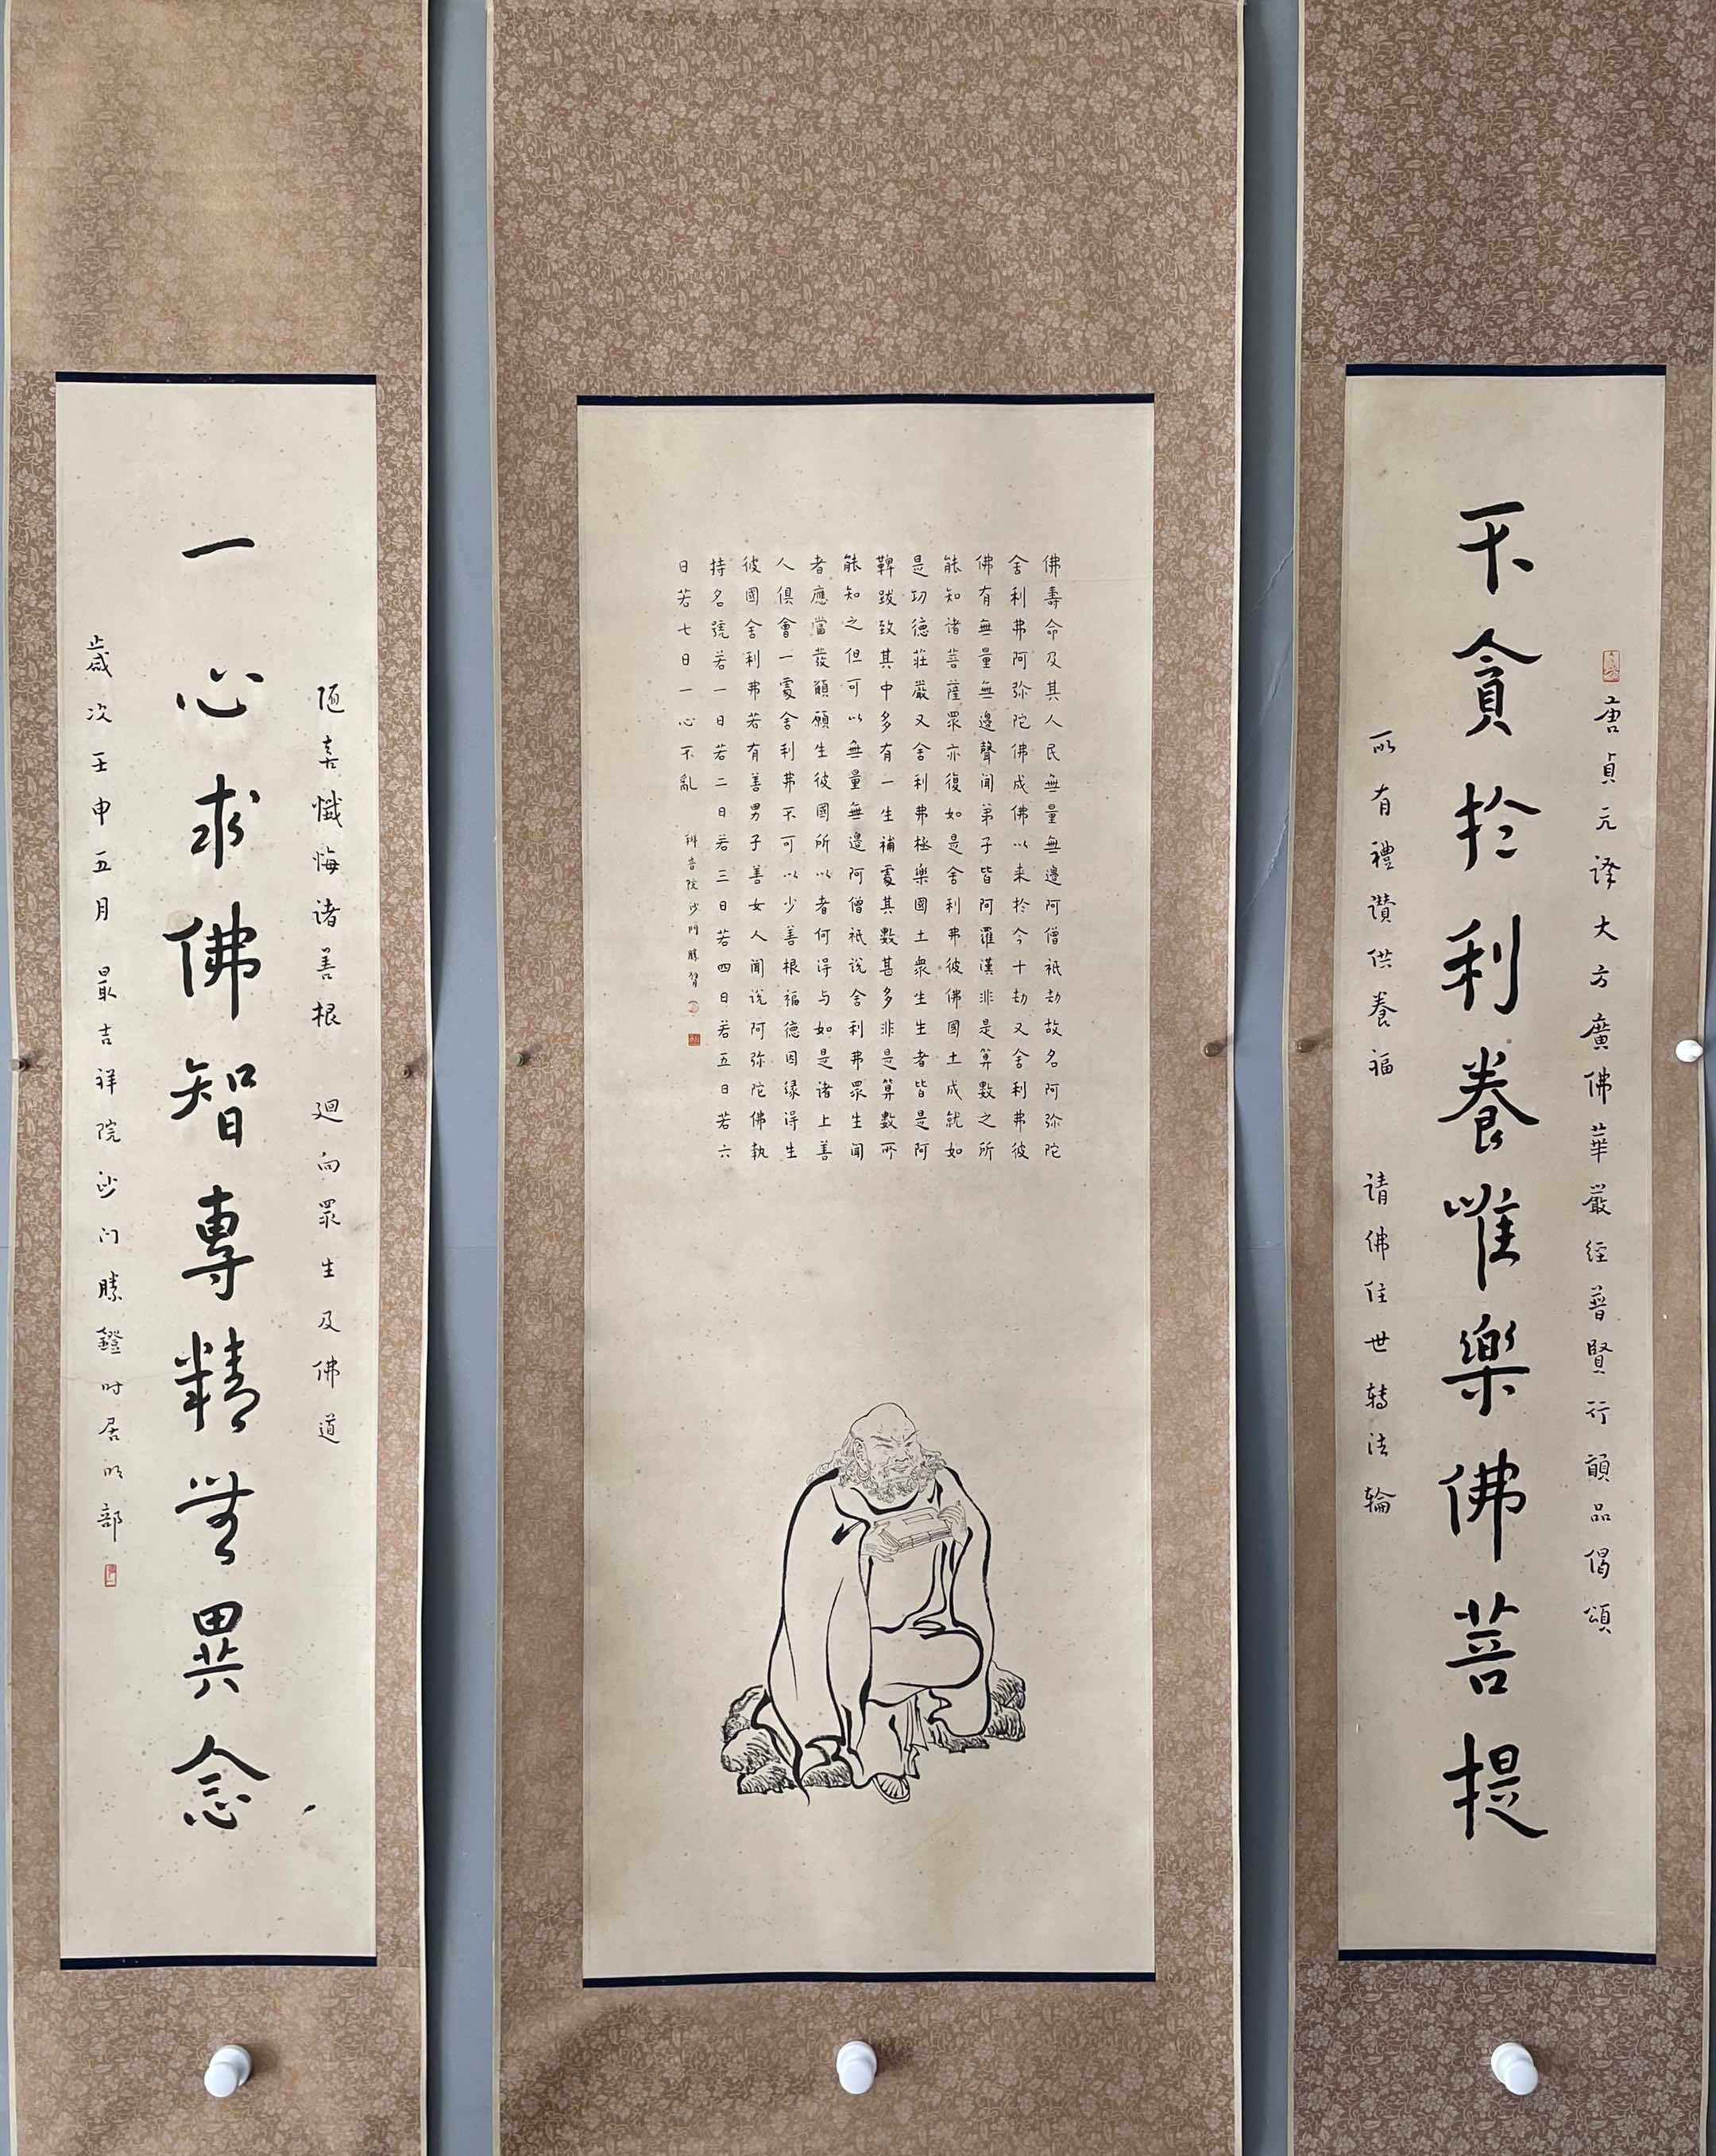 唐貞元譯大方廣佛華嚴經普賢行願品偈頌
不貪於利養唯樂佛菩提
所有禮讚供養福 請佛住世轉法輪
佛壽命及其人民無量無邊阿僧祇劫故名阿弥陀
舍利弗阿弥陀佛成佛以来於今十劫又舍利弗彼
佛有無量無邊聲聞弟子皆阿羅漢非是算數之所
能知諸菩薩眾亦復如是舍利弗彼佛國土成就如
是功德莊嚴又舍利弗極樂國土眾生生者皆是阿
鞞跋致其中多有一生補處其數甚多非是算數所
能知之但可以無量無邊阿僧祇説舍利弗眾生聞
者應當發願願生彼國所以者何得与如是諸上善
人俱會一處舍利弗不可以少善根福德因緣得生
彼國舍利弗若有善男子善女人聞説阿弥陀佛執
持名號若一日若二日若三日若四日若五日若六
日若七日一心不亂
院沙門勝
隨喜懺悔諸善根 迴向眾生及佛道
一心求佛智專精無異念
歲次壬申五月 最吉祥院沙门勝鐙时居